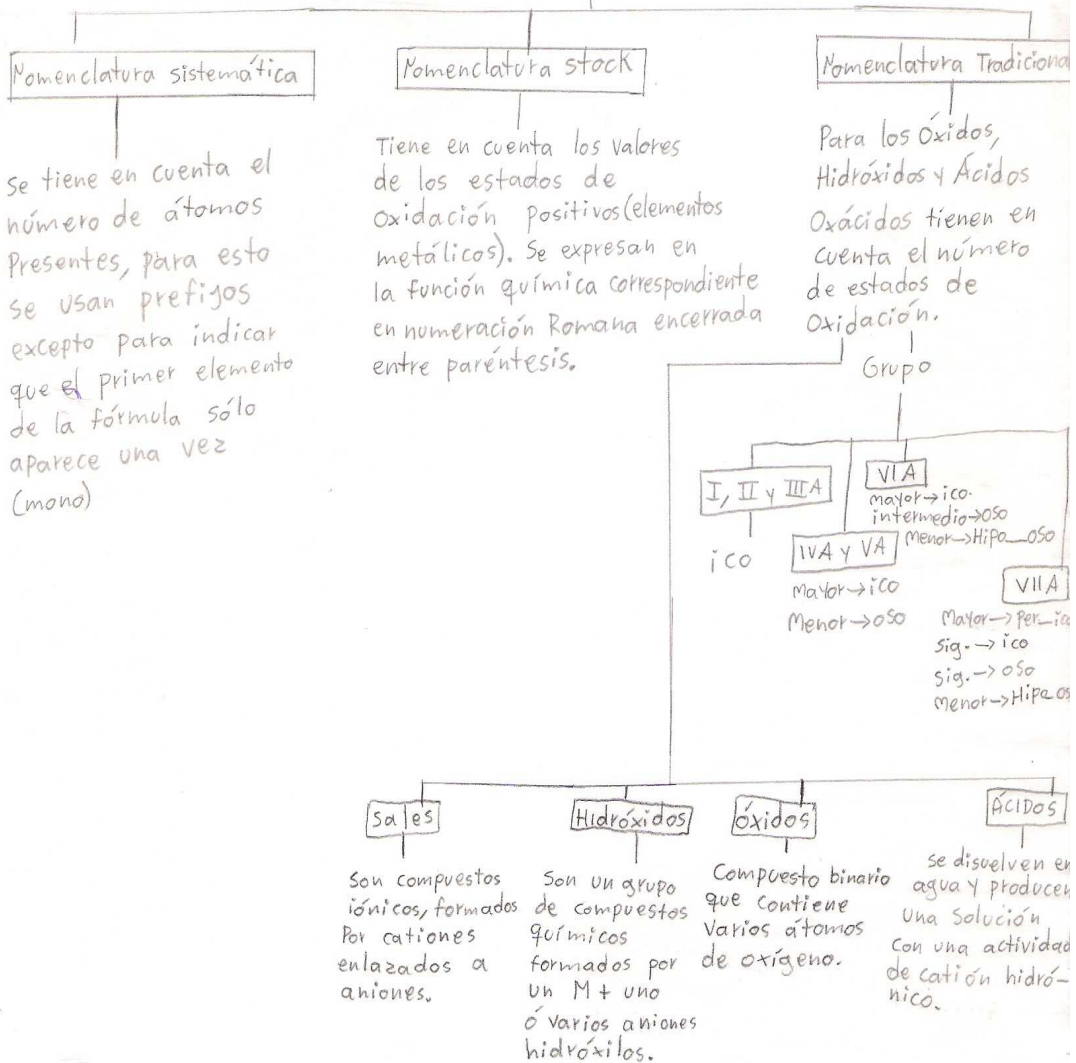 Nomenclatura sistemática
Se tiene en cuenta el
número de átomos
Presentes, para esto
se usan prefijos
excepto para indicar
que el primer elemento
de la fórmula sólo
aparece una vez
(mono)
Nomenclatura stock
Tiene en cuenta los valores
de los estados de
oxidación positivos (elementos
metálicos). Se expresan en
la función química correspondiente
en numeración Romana encerrada
entre paréntesis.
Nomenclatura Tradiciona
Para los Óxidos,
Hidróxidos y Ácidos
Oxácidos tienen en
cuenta el número
de estados de
Oxidación.
Grupo
I, II y IIIA
ico
IVA y VA
Mayor→ico
Menor→oso
VIA
mayor→ico.
intermedio→oso
Menor→Hipo__oso
VIIA
Mayor→Per_ico
Sig.→ico
sig.→oso
Menor→Hipo os
Sales
Son compuestos
iónicos, formados
Por cationes
enlazados a
aniones.
Hidróxidos
Son un grupo
de compuestos
químicos
formados por
un M + uno
ó varios aniones
hidróxilos.
óxidos
Compuesto binario
que contiene
varios átomos
de oxígeno.
ÁCIDOS
se disuelven en
agua y producen
una solución
con una actividad
de catión hidró-
nico.